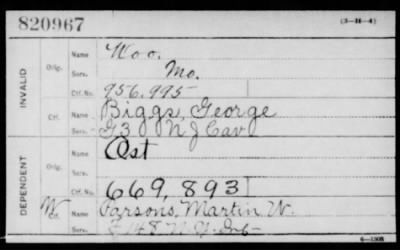 820967 (3-H-4)
INVALID
Orig. Name Woo.
Serv. Mo.
Ctf. No. 956,995
Ctf. Name Biggs, George
Serv. G 3 N J Cav
DEPENDENT
Orig. Name Ast
Serv.
Ctf. No. 669,893
W Ctf. Name Parsons, Martin W.
Serv. F 148 N.Y. Inf
6-1308